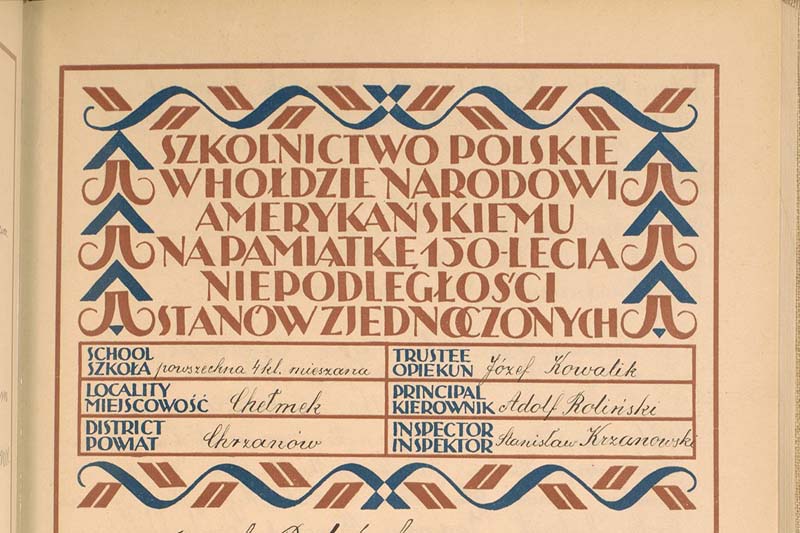 SZKOLNICTWO POLSKIE
W HOŁDZIE NARODOWI
AMERYKAŃSKIEMU
NA PAMIĄTKĘ 150-LECIA
NIEPODLEGŁOŚCI
STANÓW ZJEDNOCZONYCH
SCHOOL
SZKOŁA powszechna 4 kl. mieszana
TRUSTEE
OPIEKUN Józef Kowalik
LOCALITY
MIEJSCOWOŚĆ Chełmek
PRINCIPAL
KIEROWNIK Adolf Roliński
DISTRICT
POWIAT Chrzanów
INSPECTOR
INSPEKTOR Stanisław Krzanowski